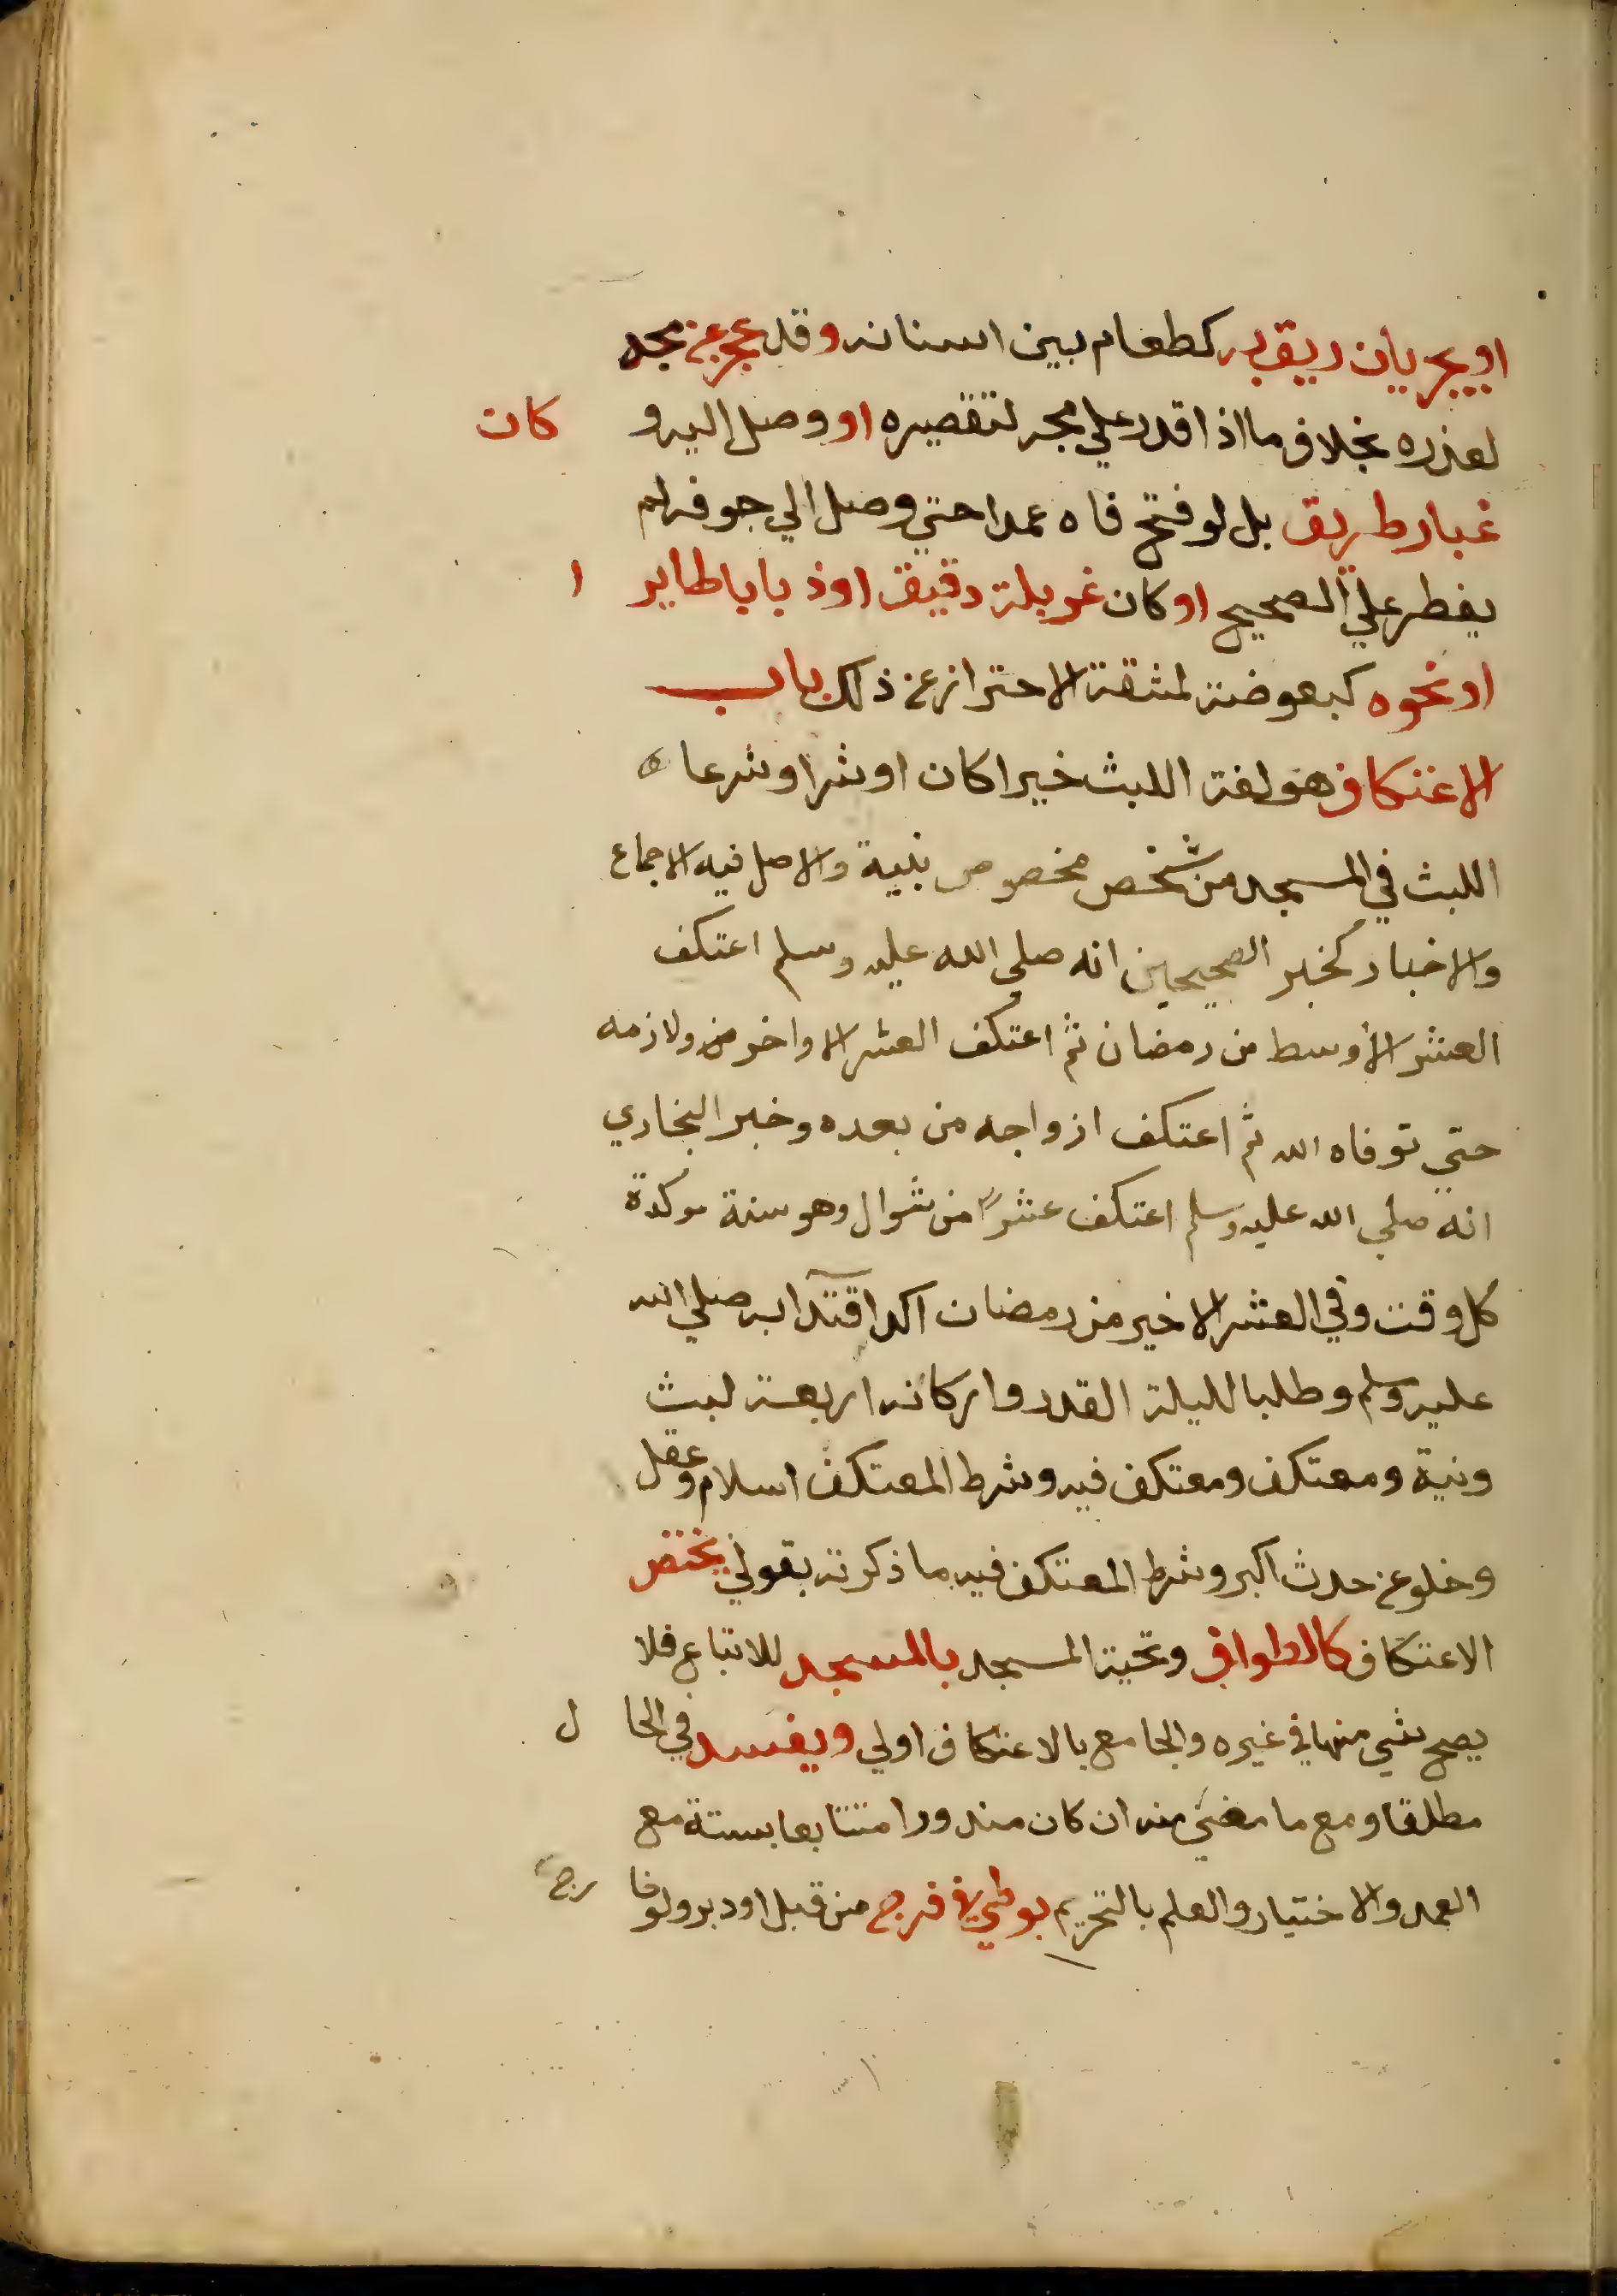 او بجريان ريق به كطعام بين اسنانه وقد عجز عن مجه
لعذره بخلاف ما اذا قدر علي مجه لتقصيره او وصل اليه و كان
غبار طريق بل لو فتح فاه عمدا حتي وصل الي جوفه لم
يفطر علي الصحيح او كان غربلة دقيق او ذبابا طاير ا
او نحوه كبعوضة لمشقة الاحتراز عن ذلك باب
الاعتكاف هو لغة اللبث خيرا كان او شرا وشرعا
اللبث في المسجد من شخص مخصوص بنية والاصل فيه الاجماع
والاخبار كخبر الصحيحين انه صلي الله عليه وسلم اعتكف
العشر الأوسط من رمضان ثم اعتكف العشر الاواخر منه ولازمه
حتي توفاه الله ثم اعتكف ازواجه من بعده وخبر البخاري
انه صلي الله عليه وسلم اعتكف عشرًا من شوال وهو سنة موكدة
كل وقت وفي العشر الاخير من رمضان اكد اقتدآ به صلي الله
عليه وسلم وطلبا لليلة القدر واركانه اربعة لبث
ونية ومعتكف ومعتكف فيه وشرط المعتكف اسلام وعقل
وخلو عن حدث اكبر وشرط المعتكف فيه ما ذكرته بقولي يختص
الاعتكاف كالطواف وتحية المسجد بالمسجد للاتباع فلا
يصح شي منها في غيره والجامع بالاعتكاف اولي ويفسد في الحا ل
مطلقا ومع ما مضي منه ان كان منذورا متتابعا بستة مع
العمد والاختيار والعلم بالتحريم بوطي في فرج من قبل او دبر ولو خا رج